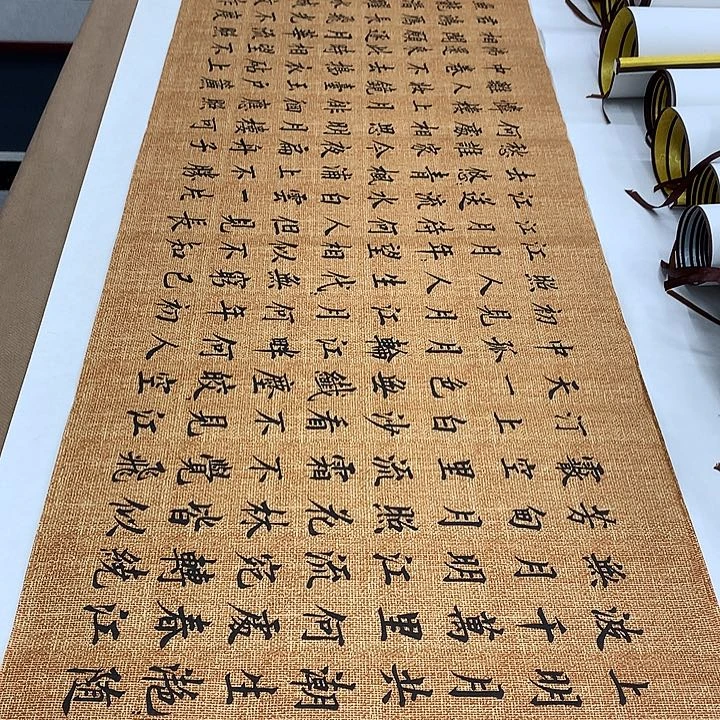 上明月共潮生灔随
波千萬里何處春江
無月明江流宛轉繞
芳甸月照花林皆似
霰空里流霜不覺飛
汀上白沙看不見江
天一色無纖塵皎空
中孤月輪江畔何人
初見月江月何年初
照人人生代無窮已
江月年望相似不知
江月待何人但見長
江送流水白雲一片
去悠青楓浦上不勝
愁誰家今夜扁舟子
何處相思明月樓可
憐樓上月徘個應照
離人妝鏡臺玉户簾
中卷不去搗衣砧上